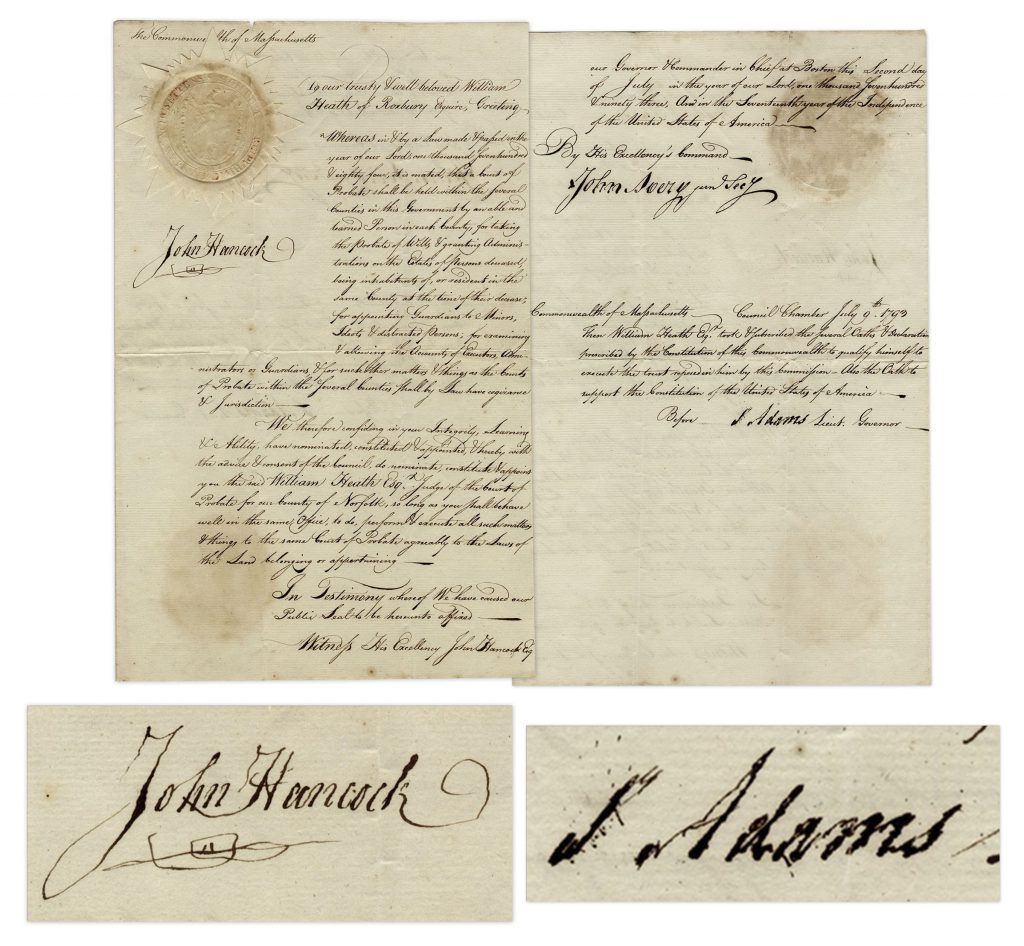 The Commonwealth of Massachusetts
To our trusty & well beloved William
Heath of Roxbury Esquire, Greeting,
Whereas in & by a Law made & passed in the
year of our Lord, one thousand seven hundred
& eighty four, it is enacted, that a Court of
Probate shall be held within the several
Counties in this Government by an able and
learned Person in each County, for taking
the Probate of Wills & granting Adminis
trations on the Estates of Persons deceased,
being inhabitants of, or resident in the
same County at the time of their decease;
for appointing Guardians to Minors,
Ideots & distracted Persons; for examining
& allowing the Accounts of Executors, Admi-
nistrators or Guardians, & for such other matters & things as the Courts
of Probate within the several Counties shall by Law have cognizance
& Jurisdiction
John Hancock
We therefore confiding in your Integrity, Learning
& Ability, have nominated, constituted & appointed, & hereby with
the advice & consent of the Council, do nominate, constitute & appoint
you the said William Heath Esqr. Judge of the Court of
Probate for our County of Norfolk, so long as you shall behave
well in the same Office, to do, perform & execute all such matters
& things to the same Court of Probate agreably to the Laws of
the Land belonging or appertaining
In Testimony whereof We have caused our
Public Seal to be hereunto affixed
Witness His Excellency John Hancock Esq
our Governor & Commander in Chief at Boston this Second day
of July in the year of our Lord, one thousand seven hundred
& ninety three, And in the Seventeenth year of the Independence
of the United States of America
By His Excellency's Command
John Avery jun Secy
Commonwealth of Massachusetts Council Chamber July 9th 1793
Then William Heath Esqr. took & subscribed the several Oaths & Declaration
prescribed by the Constitution of this Commonwealth to qualify himself to
execute the trust reposed in him by this Commission - Also the Oath to
support the Constitution of the United States of America
Before S Adams Lieut. Governor
John Hancock
S Adams